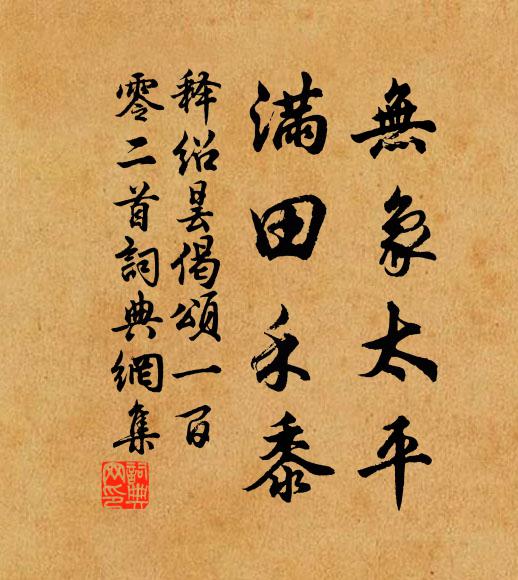 無象太平
滿田禾黍
釋紹曇偈頌一百
零二首詞典網集
詞典
网印